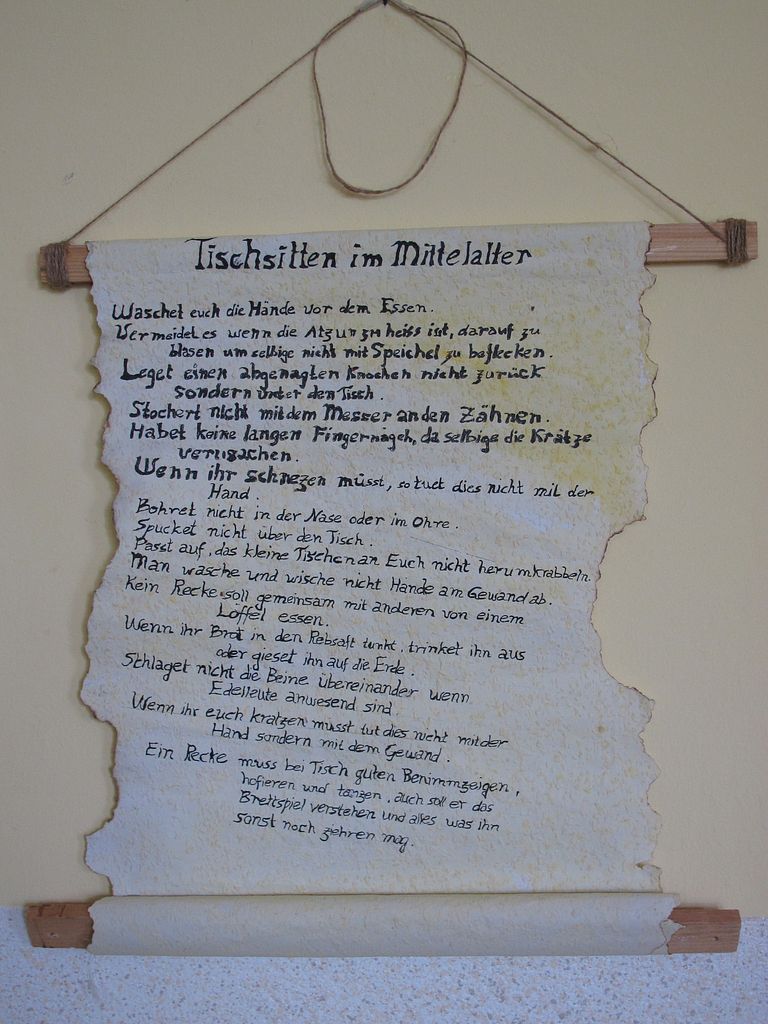 Tischsitten im Mittelalter
Waschet euch die Hände vor dem Essen.
Vermeidet es wenn die Atzung zu heiss ist, darauf zu
blasen um selbige nicht mit Speichel zu beflecken.
Leget einen abgenagten Knochen nicht zurück
sondern unter den Tisch.
Stochert nicht mit dem Messer an den Zähnen.
Habet keine langen Fingernägeh, da selbige die Krätze
verursachen.
Wenn ihr schnezen müsst, so tuet dies nicht mit der
Hand.
Bohret nicht in der Nase oder im Ohre.
Spucket nicht über den Tisch.
Passt auf, das kleine Tierchen an Euch nicht herumkrabbeln.
Man wasche und wische nicht Hände am Gewand ab.
Kein Recke soll gemeinsam mit anderen von einem
Löffel essen.
Wenn ihr Brot in den Rebsaft tunkt, trinket ihn aus
oder gieset ihn auf die Erde.
Schlaget nicht die Beine übereinander wenn
Edelleute anwesend sind.
Wenn ihr euch kratzen müsst tut dies nicht mit der
Hand sondern mit dem Gewand.
Ein Recke muss bei Tisch guten Benimm zeigen,
hofieren und tanzen, auch soll er das
Brettspiel verstehen und alles was ihn
sonst noch ziehren mag.